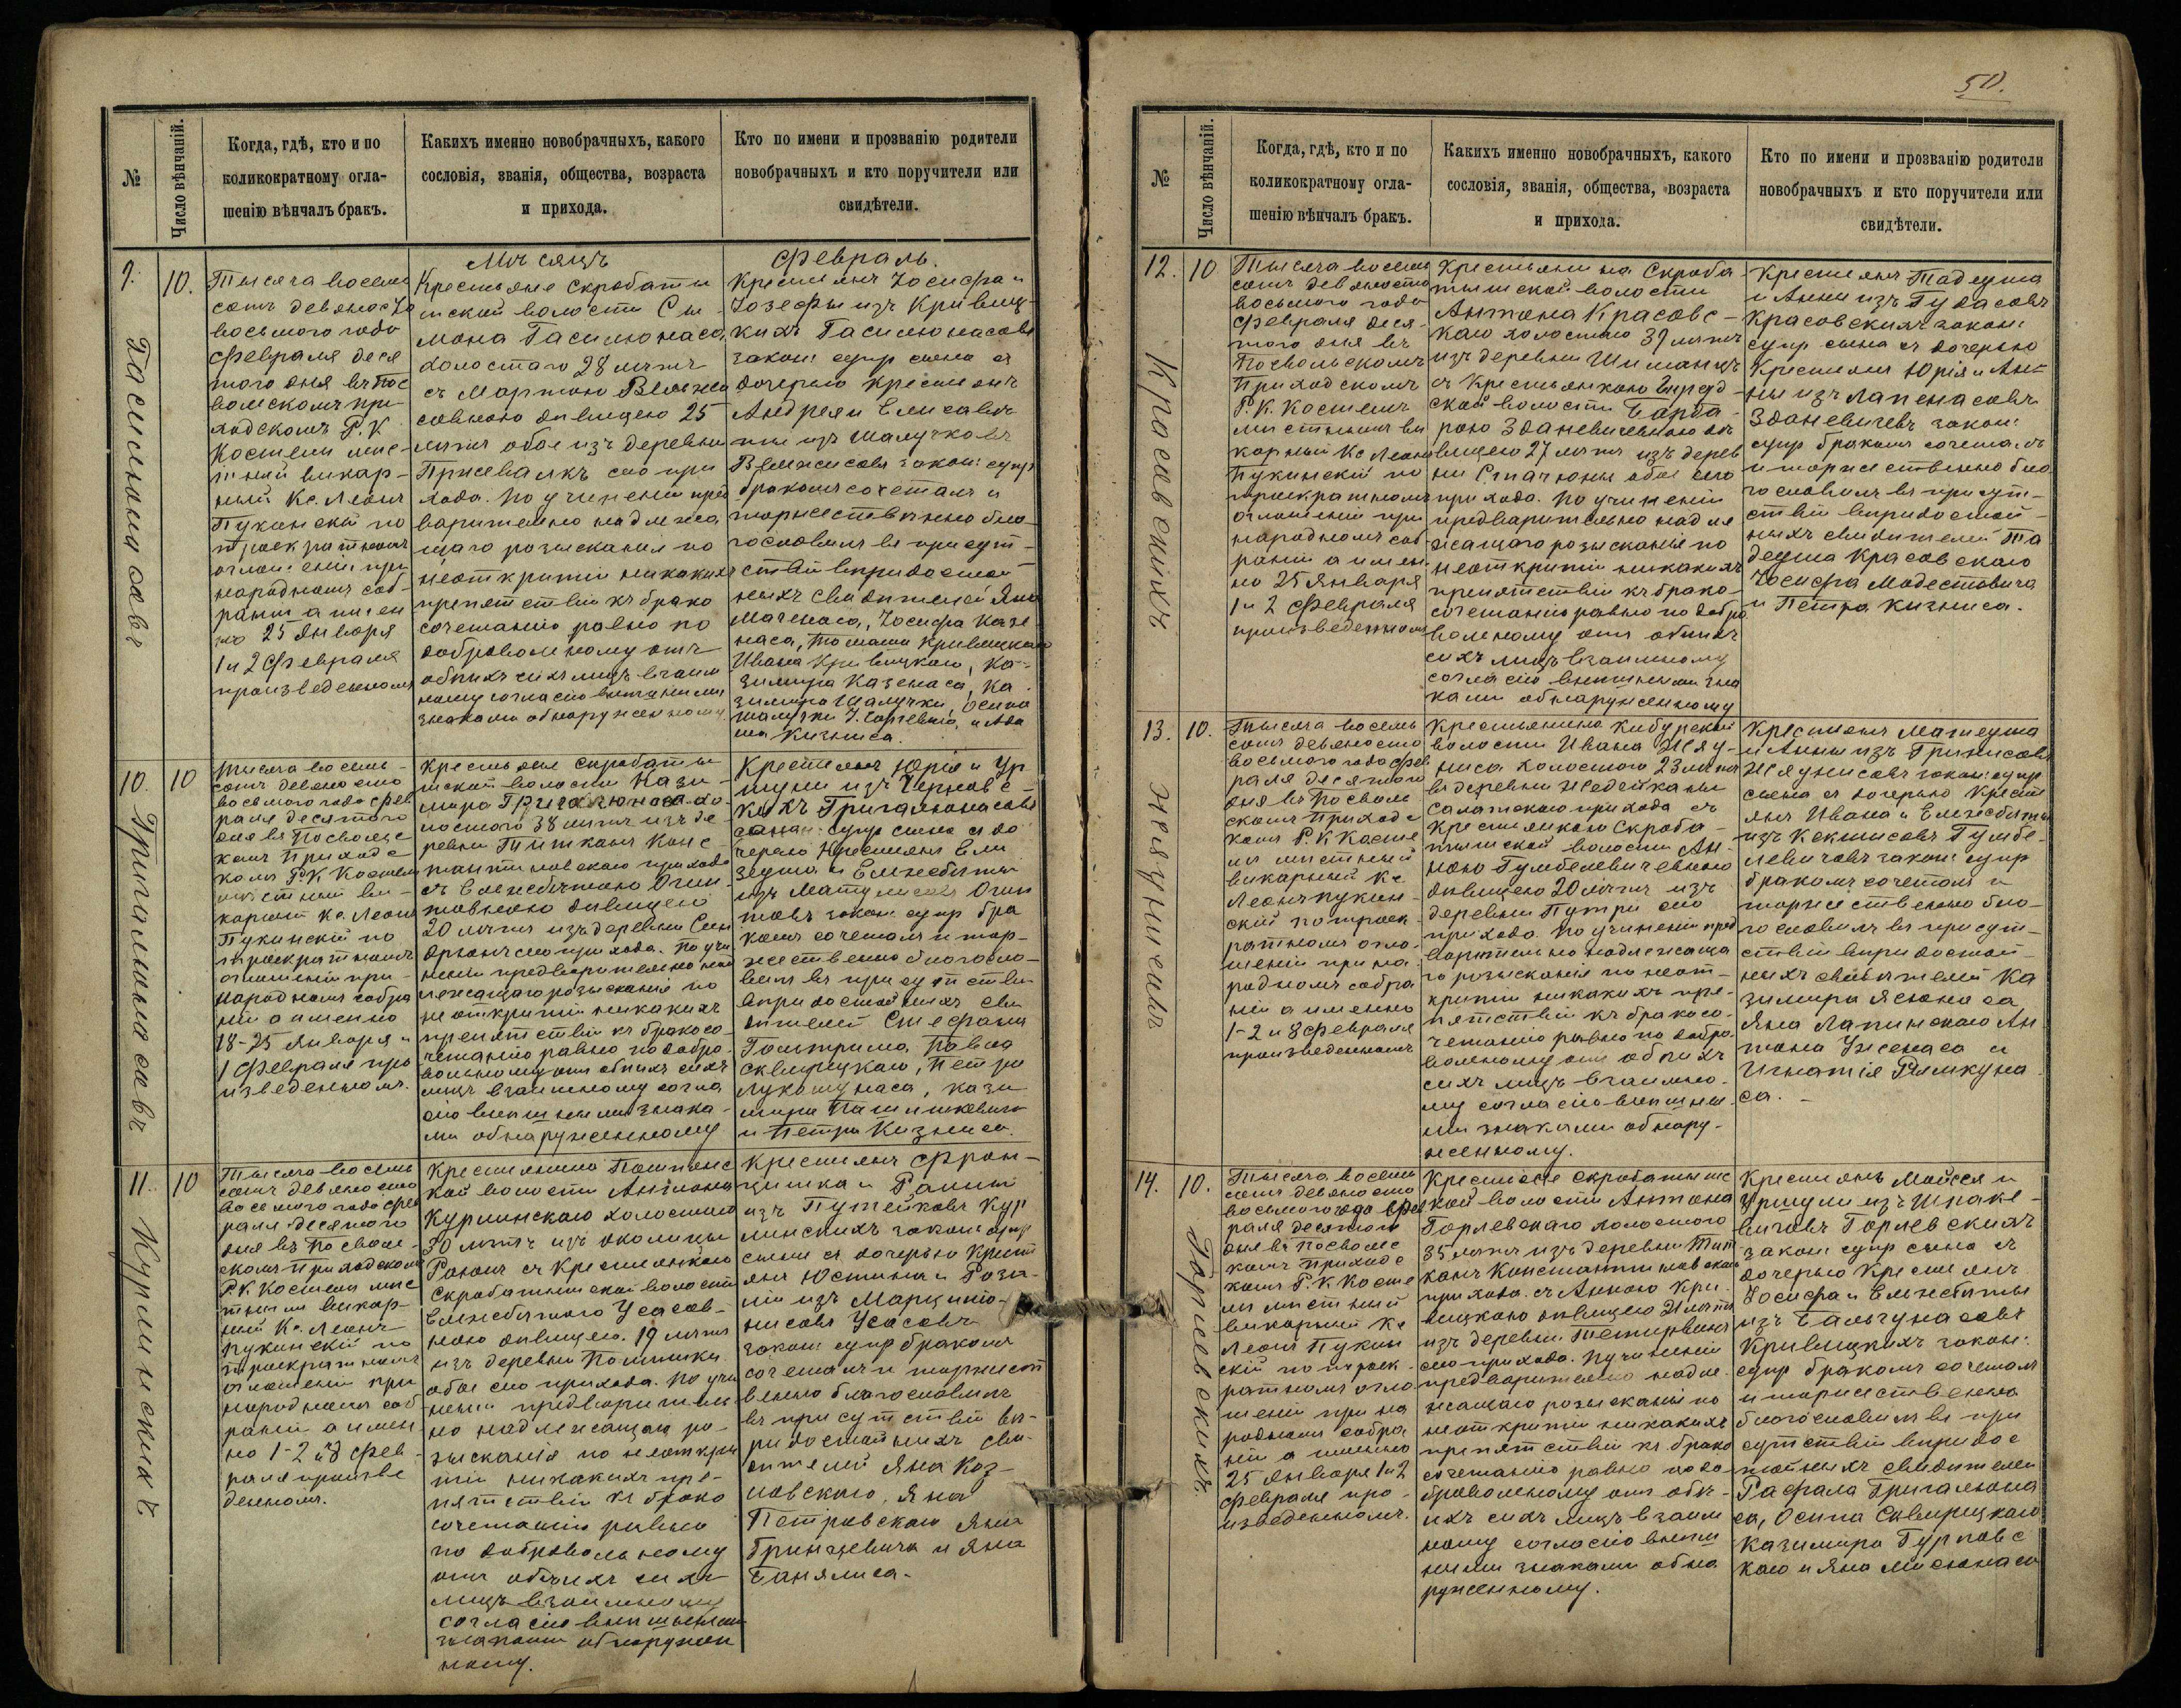 №
Число вѣнчаній.
Когда, гдѣ, кто и по
коликократному огла-
шенію вѣнчалъ бракъ.
Какихъ именно новобрачныхъ, какого
сословія, званія, общества, возраста
и прихода.
Кто по имени и прозванію родители
новобрачныхъ и кто поручители или
свидѣтели.
Мѣсяцъ Февраль.
9.
10.
Тысяча восемь
сотъ девяносто
восьмого года
Февраля деся
того дня въ Пос
вольскомъ при-
ходскомъ Р. К.
Костелѣ мѣс-
тный викар-
ный Кс. Леонъ
Пукинскій по
троекратномъ
оглашеніи при
народномъ соб-
раніи а имен
но 25 Января
1 и 2 Февраля
произведенномъ
Крестьяне Скробаты
шской волости Сы-
мона Гасилюнаса,
холостаго 28 лѣтъ
съ Мартою
совною дѣвицею 25
лѣтъ обое изъ деревни
сего при
хода. По учиненіи пред
варительно надлежа
щаго розысканія по
неоткрытіи никакихъ
препятствій къ брако
сочетанію равно по
добровольному отъ
обоихъ сихъ лицъ взаим
ному согласію внѣшними
знаками обнаруженному
Крестьянъ Іосифа и
Іозефы изъ Кривиц-
кихъ Гасилюнасовъ
закон: супр сына съ
дочерью Крестьянъ
Андрея и Елисаве
ты изъ Шалучковъ
закон: супр
бракомъ сочеталъ и
торжественно бла-
гословилъ въ присут-
ствіи вѣридостой-
ныхъ свидѣтелей Яна
Маченаса, Іосифа Казе
наса, Томаша Кривицкаго
Ивана Кривицкаго, Ка-
зимира Казенаса, Ка
зимира Шалучки, Осипа
Шалучки и Ада
ма Кизниса.
Гасилюнасовъ
10.
10
Тысяча восемь-
сотъ девяносто
восьмого года Фев
раля десятого
дня въ Посвольс
комъ Приходс
комъ Р. К. Костелѣ
мѣстный ви-
карный Кс. Леонъ
Пукинскій по
троекратномъ
оглашеніи при-
народномъ собра
ніи а именно
18-25 Января и
1 Февраля про
изведенномъ.
Крестьяне Скробаты
шской волости Кази-
мира Григалюнаса хо-
лостого 38 лѣтъ изъ де-
ревни Титканъ Конс-
тантиновскаго прихода
съ Елжбѣтою Огин
товною дѣвицею
20 лѣтъ изъ деревни
сего прихода. По учи
неніи предварительно над
лежащаго розысканія по
неоткрытіи никакихъ
препятствій къ бракосо-
четанію равно по добро-
вольному отъ обоихъ сихъ
лицъ взаимному согла
сію внѣшными знака-
ми обнаруженному
Крестьянъ Юрія и Ур
шули изъ Чернявс-
кихъ Григалюнасовъ
закон: супр сына съ до
черью Крестьянъ
и Елжбѣты
изъ Огин
товъ закон: супр бра
комъ сочеталъ и тор-
жественно благосло-
вилъ въ присутствіи
вѣридостойныхъ сви
дѣтелей Стефана
Павла
Сквирецкаго, Петра
Лукошунаса, Кази
мира
и Петра Кизниса.
Григалюнасовъ
11.
10
Тысяча восемь
сотъ девяносто
восьмого года Фев
раля десятого
дня въ Посволь-
скомъ Приходскомъ
Р. К. Костелѣ мѣс
тный викар-
ный Кс. Леонъ
Пукинскій по
троекратномъ
оглашеніи при
народномъ соб
раніи а имен
но 1-2 и 8 Фев-
раля произве
денномъ.
Крестьянина
кой волости Антона
Курминскаго холостаго
30 лѣтъ изъ околицы
съ Крестьянкою
Скробатышской волости
Елжбѣтою Усасов-
ною дѣвицею 19 лѣтъ
изъ деревни
обое сего прихода. По учи
неніи предварительно
но надлежащаго ро-
зысканія по неоткры
тіи никакихъ пре-
пятствій къ брако
сочетанію равно
по добровольному
отъ обоихъ сихъ
лицъ взаимному
согласію внѣшными
знаками обнаружен
ному.
Крестьянъ Фран-
цишка и
изъ Путейковъ Кур
минскихъ закон: супр
сына съ дочерью Крест
янъ Юстина и Роза-
ліи изъ
Усасовъ
закон: супр бракомъ
сочеталъ и торжест
венно благословилъ
въ присутствіи вѣ-
ридостойныхъ сви-
дѣтелей Яна Коз-
ловскаго, Яна
Петровскаго Яна
Гринцевича и Яна
Курминскихъ
50.
№
Число вѣнчаній.
Когда, гдѣ, кто и по
коликократному огла-
шенію вѣнчалъ бракъ.
Какихъ именно новобрачныхъ, какого
сословія, званія, общества, возраста
и прихода.
Кто по имени и прозванію родители
новобрачныхъ и кто поручители или
свидѣтели.
12.
10
Тысяча восемь
сотъ девяносто
восьмого года
Февраля деся-
того дня въ
Посвольскомъ
Приходскомъ
Р. К. Костелѣ
мѣстный ви
карный Кс Леонъ
Пукинскій по
троекратномъ
оглашеніи при
народномъ соб-
раніи а имен
но 25 Января
1 и 2 Февраля
произведенномъ
Крестьянина Скроба
тышской волости
Антона Красовс-
каго холостаго 39 лѣтъ
изъ деревни Шиманцъ
съ Крестьянкою
ской волости Барба-
рою Зданевичевною дѣ
вицею 27 лѣтъ изъ дерев
ни Стачюны обое сего
прихода. По учиненіи
предварительно надле
жащаго розысканія по
неоткрытіи никакихъ
препятствій къ брако-
сочетанію равно по добро
вольному отъ обоихъ
сихъ лицъ взаимному
согласію внѣшними зна
ками обнаруженному
Крестьянъ Тадеуша
и Анны изъ Гудасовъ
Красовскихъ закон:
супр сына съ дочерью
Крестьянъ Юрія и Ан-
ны изъ Лапенасовъ
Зданевичевъ закон:
супр бракомъ сочеталъ
и торжественно бла
гословилъ въ присут-
ствіи вѣридостой-
ныхъ свидѣтелей Та
деуша Красовскаго
Іосифа Модестовича
и Петра Кизниса.
Красовскихъ
13.
10.
Тысяча восемь
сотъ девяносто
восьмого года Фев
раля десятого
дня въ Посволь
скомъ Приходс
комъ Р. К. Косте
лѣ мѣстный
викарный Кс
Леонъ Пукин-
скій по троек-
ратномъ огла-
шеніи при на-
родномъ собра
ніи а именно
1-2 и 8 Февраля
произведенномъ
Крестьянина Кибурской
волости Ивана Жяу-
ниса холостого 23 лѣтъ
изъ деревни Недейканы
Салатскаго прихода съ
Крестьянкою Скроба-
тышской волости Ан-
ною Гумбелевичевною
дѣвицею 20 лѣтъ изъ
деревни Путри сего
прихода. По учиненіи пред
варительно надлежаща
го розысканія по неот-
крытіи никакихъ пре-
пятствій къ бракосо-
четанію равно по добро-
вольному отъ обоихъ
сихъ лицъ взаимно-
му согласію внѣшны-
ми знаками обнару-
женному.
Крестьянъ Матеуша
и Анны изъ
Жяунисовъ закон: супр
сына съ дочерью Крест
янъ Ивана и Елжбѣты
изъ Гумбе-
левичовъ закон: супр
бракомъ сочеталъ и
торжественно бла-
гословилъ въ присут-
ствіи вѣридостой-
ныхъ свидѣтелей Ка
зимира Ясюнаса
Яна Лапинскаго Ан
тона Ужсенаса и
Игнатія Рямкуна
са.
Жяунисовъ
14.
10.
Тысяча восемь
сотъ девяносто
восьмого года Фев
раля десятого
дня въ Посвольс
комъ Приходс
комъ Р. К. Косте
лѣ мѣстный
викарный Кс
Леонъ Пукин
скій по троек-
ратномъ огла
шеніи при на
родномъ собра
ніи а именно
25 Января 1 и 2
Февраля про-
изведенномъ.
Крестьяне Скробатышс
кой волости Антона
Горлевскаго холостого
35 лѣтъ изъ деревни Тит
канъ Константиновскаго
прихода съ Анною Кри
вицкою дѣвицею 21 лѣтъ
изъ деревни
сего прихода. По учиненіи
предварительно надле-
жащаго розысканія по
неоткрытіи никакихъ
препятствій къ брако
сочетанію равно по до-
бровольному отъ обо-
ихъ сихъ лицъ взаим
ному согласію внѣш
ными знаками обна
руженному.
Крестьянъ Мойсея и
Уршули изъ Шпаке-
вичовъ Горлевскихъ
закон: супр сына съ
дочерью Крестьянъ
Іосифа и Елжбѣты
изъ Бальчунасовъ
Кривицкихъ закон:
супр бракомъ сочеталъ
и торжественно
благословилъ въ при
сутствіи вѣридос
тойныхъ свидѣтелей
Рафала Григалюна
са, Осипа Сквирецкаго
Казимира Гурковс
каго и Яна Мисюнаса
Горлевскихъ.